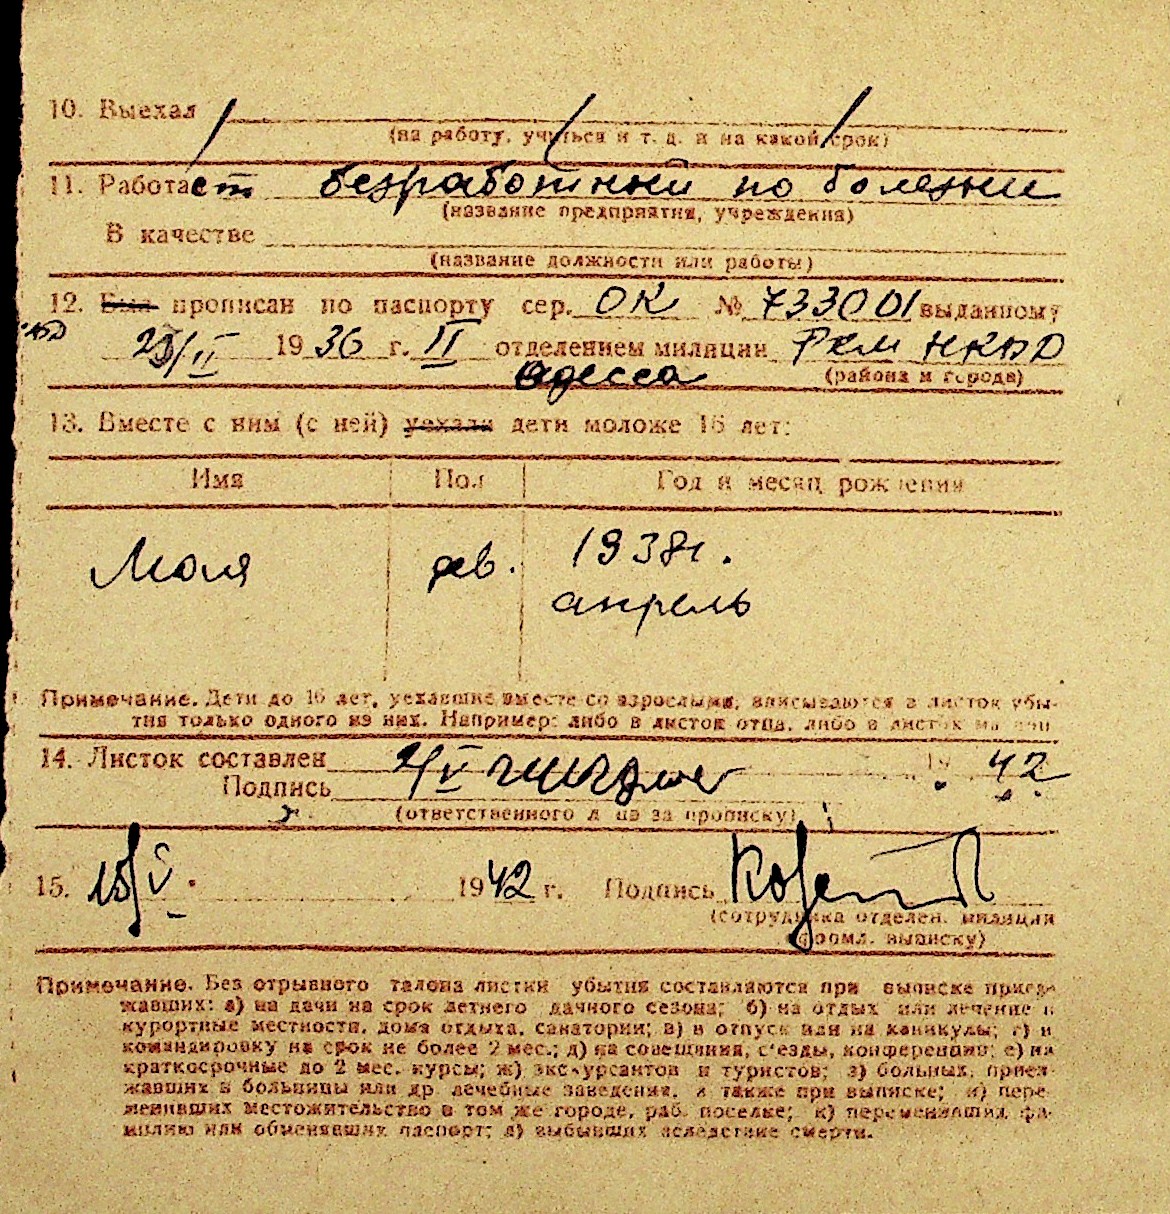 10. Выехал
(на работу, учиться и т. д. и на какой срок)
11. Работает безработный по болезни
(название предприятия, учреждения)
В качестве
(название должности или работы)
12. Был прописан по паспорту сер. ОК № 733001 выданному
/II 1936 г. II отделением милиции РКМ НКВД
Одесса (района и города)
13. Вместе с ним (с ней) уехали дети моложе 16 лет:
Имя Пол Год и месяц рождения
Моля дев. 1938г.
апрель
Примечание. Дети до 16 лет, уехавшие вместе со взрослыми, вписываются в листок убы-
тия только одного из них. Например: либо в листок отца, либо в листок матери
14. Листок составлен 2/V 1942
Подпись
(ответственного лица за прописку)
15. 15/V. 1942 г. Подпись
(сотрудника отделен. милиции
оформл. выписку)
Примечание. Без отрывного талона листки убытия составляются при выписке приез-
жавших: а) на дачи на срок летнего дачного сезона; б) на отдых или лечение в
курортные местности, дома отдыха, санатории; в) в отпуск или на каникулы; г) в
командировку на срок не более 2 мес.; д) на совещания, с'езды, конференции; е) на
краткосрочные до 2 мес. курсы; ж) экскурсантов и туристов; з) больных, приез-
жавших в больницы или др лечебные заведения, а также при выписке; и) пере-
менивших местожительство в том же городе, раб. поселке; к) переменивших фа-
милию или обменявших паспорт; л) выбывших вследствие смерти.